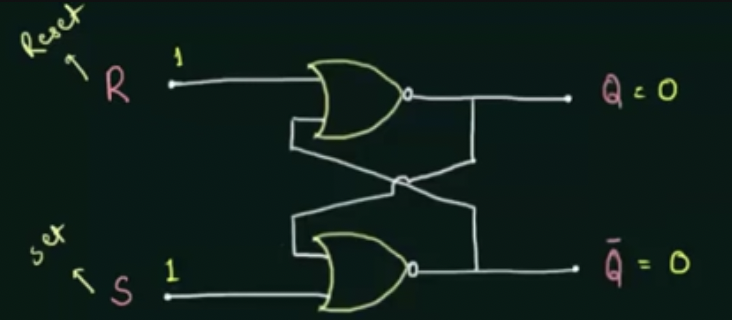 Reset
R 1 Q = 0
set
S 1 Q̄ = 0